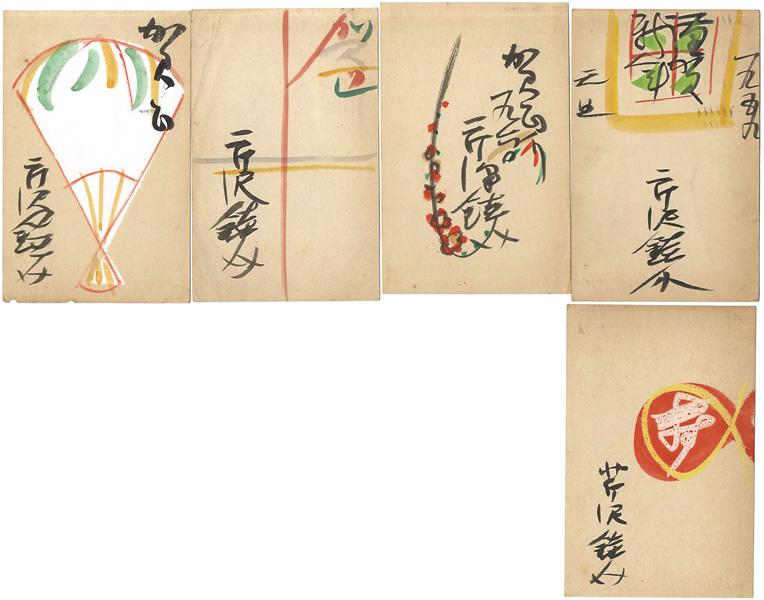 賀正
芹沢銈介
賀正
芹沢銈介
賀正
芹沢銈介
一九五九
謹賀
新年
元旦
芹沢銈介
寿
芹沢銈介